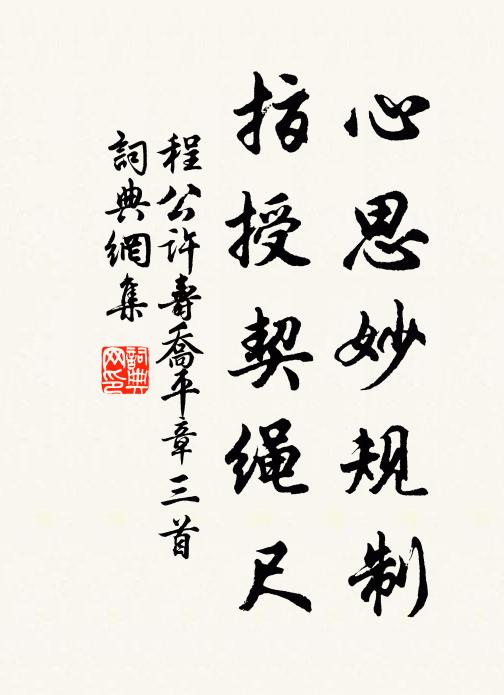 心思妙规制
指授契绳尺
程公许寿喬平章三首
詞典網集
詞典
网印